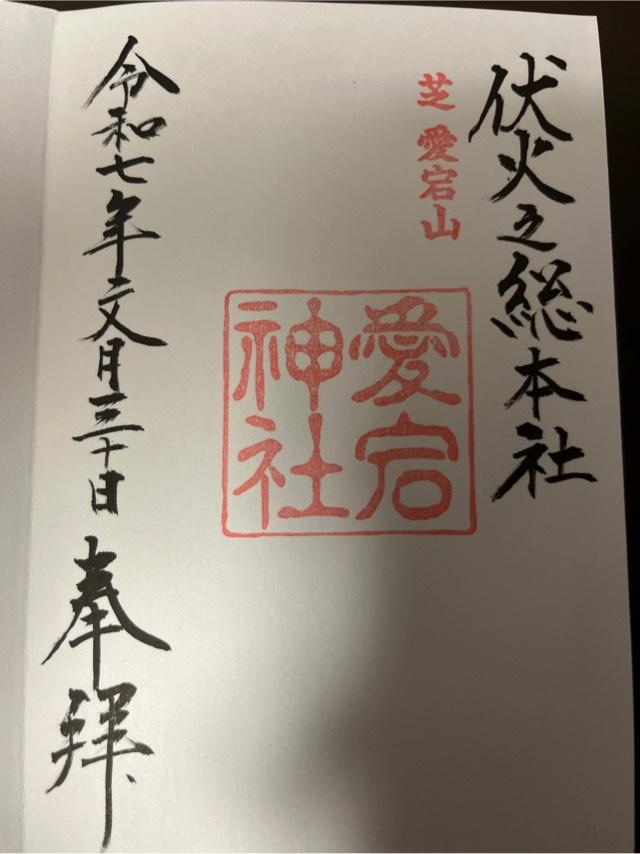 伏火之総本社
芝 愛宕山
愛宕
神社
令和七年文月三十日 奉拝